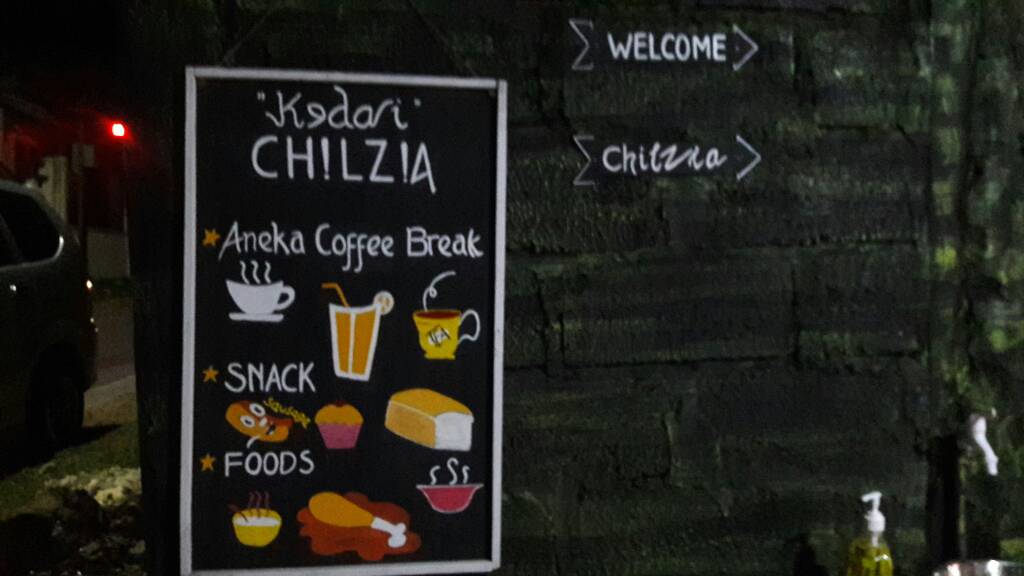 "Kedari"
CH!LZ!A
Aneka Coffee Break
TEA
SNACK
Sausage
FOODS
WELCOME
Chilzia